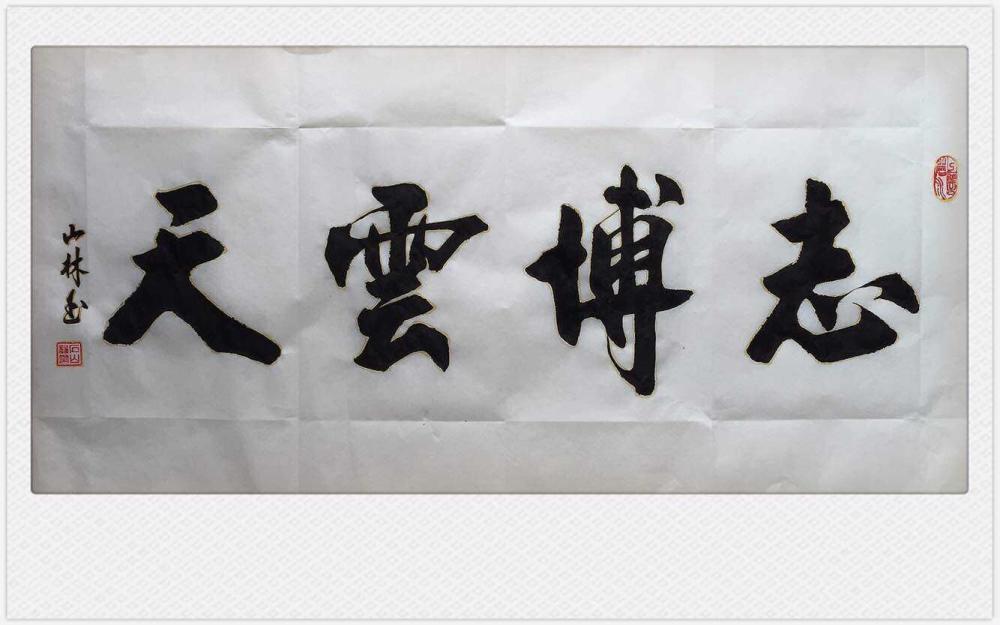 志博雲天
山林玉